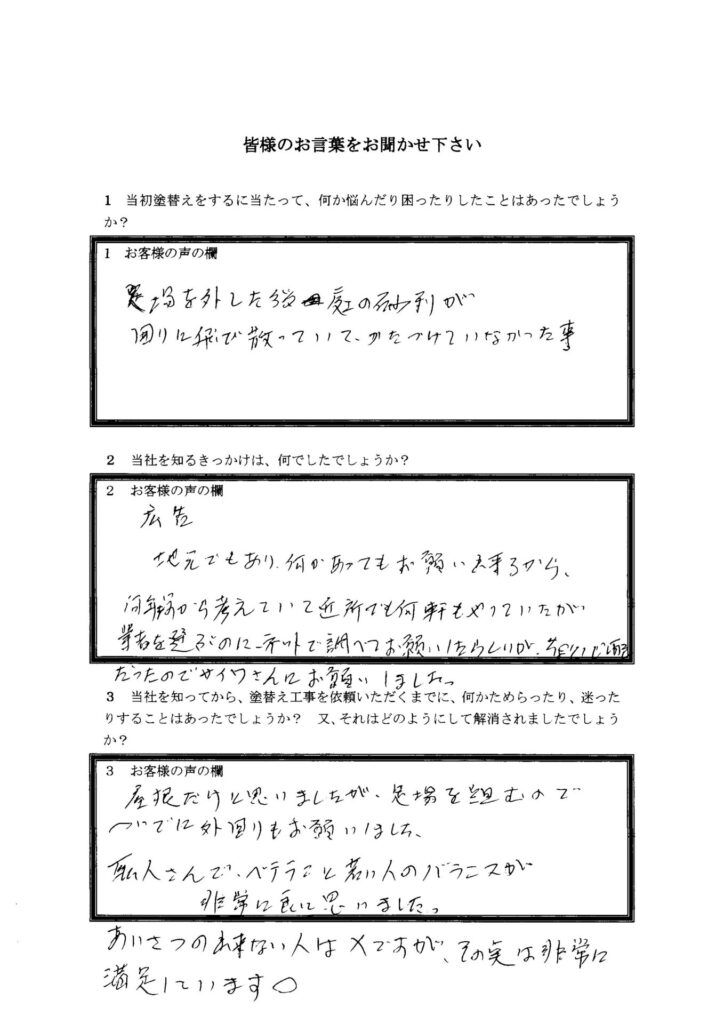 皆様のお言葉をお聞かせ下さい
1 当初塗替えをするに当たって、何か悩んだり困ったりしたことはあったでしょう
か？
1 お客様の声の欄
足場を外した後 庭の砂利が
回りに飛び散っていて、かたづけていなかった事
2 当社を知るきっかけは、何でしたでしょうか？
2 お客様の声の欄
広告
地元でもあり、何かあってもお願い出来るから、
何年前から考えていて近所でも何軒もやっていたが
業者を選ぶのにネットで調べてお願いしたらしいが、心配
だったのでサイワさんにお願いしました。
3 当社を知ってから、塗替え工事を依頼いただくまでに、何かためらったり、迷った
りすることはあったでしょうか？ 又、それはどのようにして解消されましたでしょう
か？
3 お客様の声の欄
屋根だけと思いましたが、足場を組むので
ついでに外回りもお願いしました、
職人さんで、ベテランと若い人のバランスが
非常に良いと思いました。
あいさつの出来ない人は×ですが、その点は非常に
満足しています○